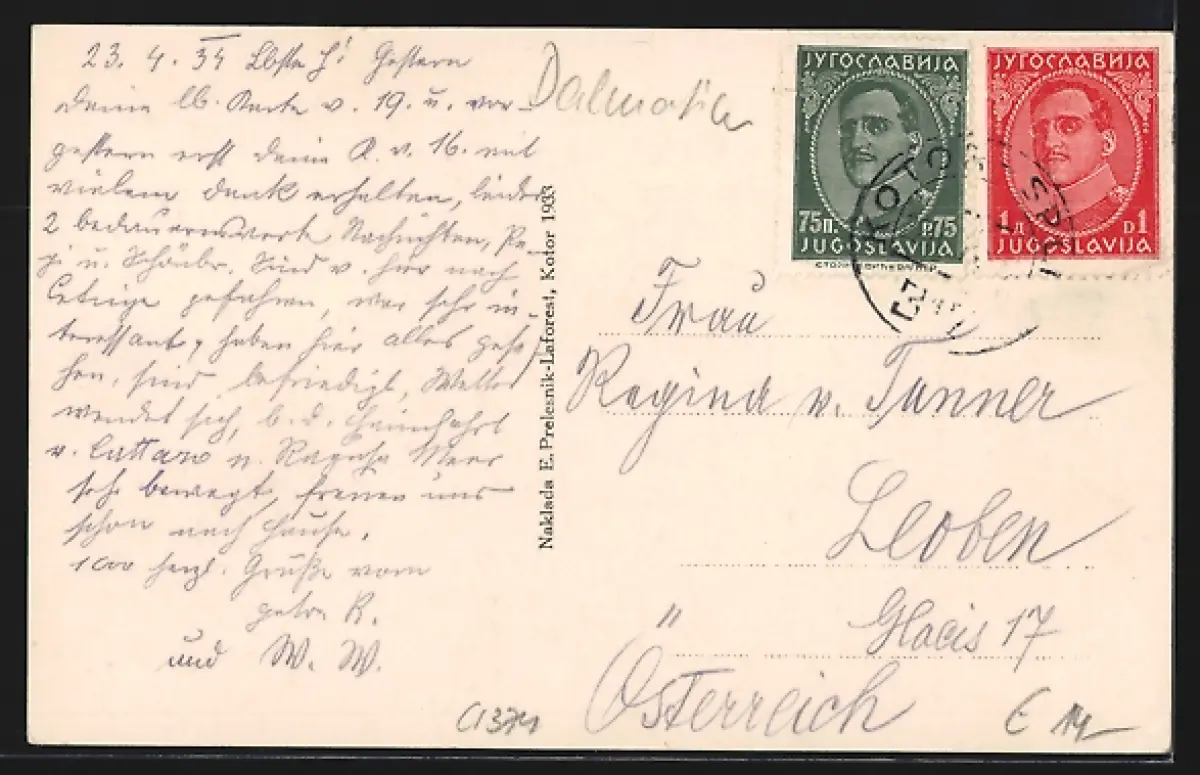 23. 4. 34 Lbste J! Gestern
deine lb. Karte v. 19. u. vor-
gestern erst deine K. v. 16. mit
vielem dank erhalten, leider
2 bedauernswerte Nachrichten,
u. Sind v. hier nach
Cetinje gefahren, war sehr in-
teressant, haben hier alles gese-
hen, sind befriedigt, Wetter
wendet sich, b. d. Heimfahrt
v. Cattaro n. Ragusa Meer
sehr bewegt, freuen uns
schon nach Hause.
1000 herzl. Grüße vom
R.
und W. W.
Dalmatien
Naklada E. Prelesnik-Laforest, Kotor 1933
ЈУГОСЛАВИЈА
75П. P.75
JUGOSLAVIJA
ЈУГОСЛАВИЈА
1Д D1
JUGOSLAVIJA
Frau
Regina v. Tunner
Leoben
Glacis 17
"
Österreich
€ 14